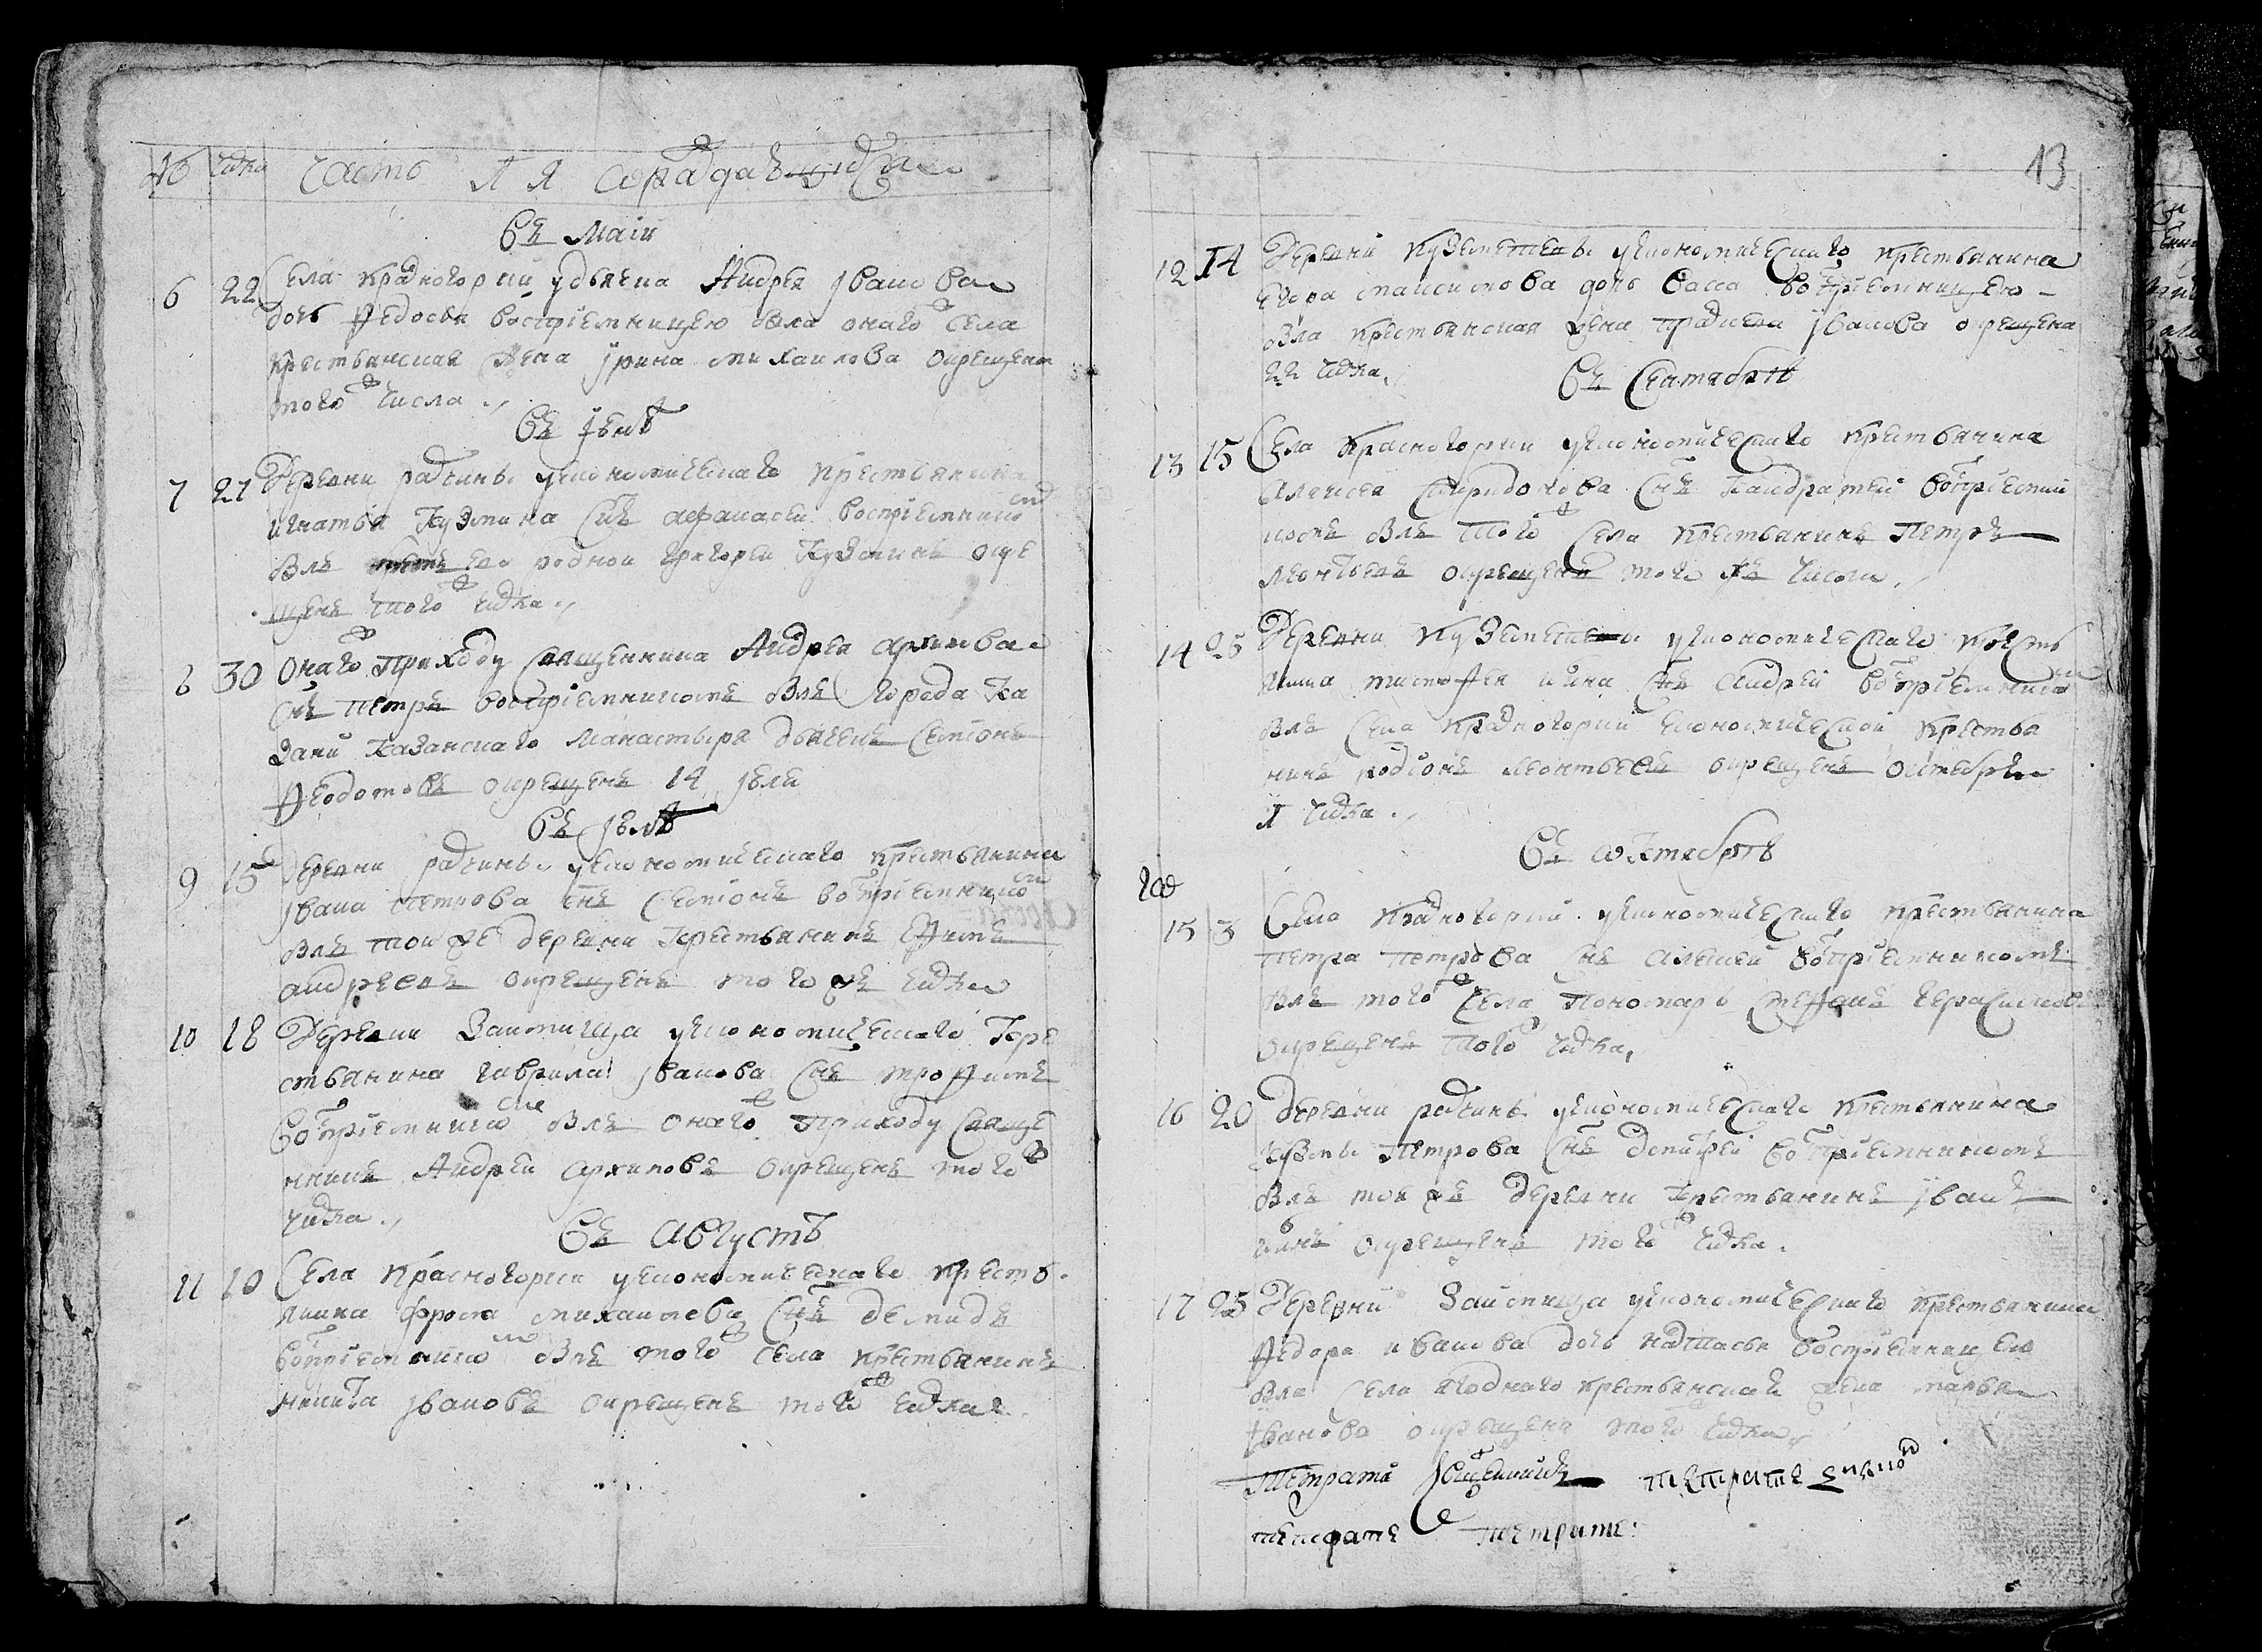 № числа Часть 1 я о раждающихся
Въ Маiи
6 22 Села Красногории удьячка Андрея Iванова
дочь Федосья восприемницею была оного ж села
крестьянская жена Iрина Михаилова окрещена
того ж числа
Въ Iюнѣ
7 27 Деревни экономическаго крестьянина
Игнатья Кузмина снъ Афанасеи восприемником
былъ ево родной Григореи Кузминъ окре
щенъ того ж числа
8 30 Оного ж приходу священника Андрея Архипова
снъ Петръ восприемникомъ былъ города Ка
зани Казанскаго манастыря дьячекъ Семионъ
Федотовъ окрещенъ 14 Iюли
Въ Iюлѣ
9 15 Деревни экономическаго крестьянина
Iвана Петрова снъ Семионъ восприемником
былъ тои же деревни крестьянинъ Ефимъ
Андреевъ окрещенъ того ж числа
10 18 Деревни Займища экономическаго кре
стьянина Гаврила Iванова снъ Трофимъ
восприемником былъ оного ж приходу свяще
нникъ Андреи Архиповъ окрещенъ того ж
числа
Въ Августѣ
11 10 Села Красногории экономическаго кресть
янина Фрола Михаилева снъ Демидъ
восприемником былъ того ж села крестьянинъ
Никита Iвановъ окрещенъ того ж числа
13
12 14 Деревни экономическаго крестьянина
Егора Максимова дочь Васса восприемницею
была крестьянская жена Iванова окрещена
22 числа
Въ Сентябрѣ
13 15 Села Красногории экономическаго крестьянина
Алексея Спиридонова снъ Кандратеи восприемни
комъ былъ того ж села крестьянинъ Петръ
Леонтьевъ окрещенъ того жъ числа
14 25 Деревни экономическаго кресть
янина Тимофея снъ Андреи восприемником
былъ села Красногории экономическои крестья
нинъ Родионъ Леонтьевъ окрещенъ октября
1 числа
Въ октябрѣ
15 3 Села Красногории экономическаго крестьянина
Петра Петрова снъ Алексеи восприемникомъ
былъ того ж села пономарь Стефанъ Герасимовъ
окрещенъ того ж числа
16 20 Деревни экономическаго крестьянина
Кузмы Петрова снъ Дмитреи восприемникомъ
былъ тои же деревни крестьянинъ Iванъ
окрещенъ того ж числа
17 25 Деревни Займища экономическаго крестьянина
Федора Иванова дочь Настасья восприемницею
была села крестьянская жена Марья
Iванова окрещена того ж числа